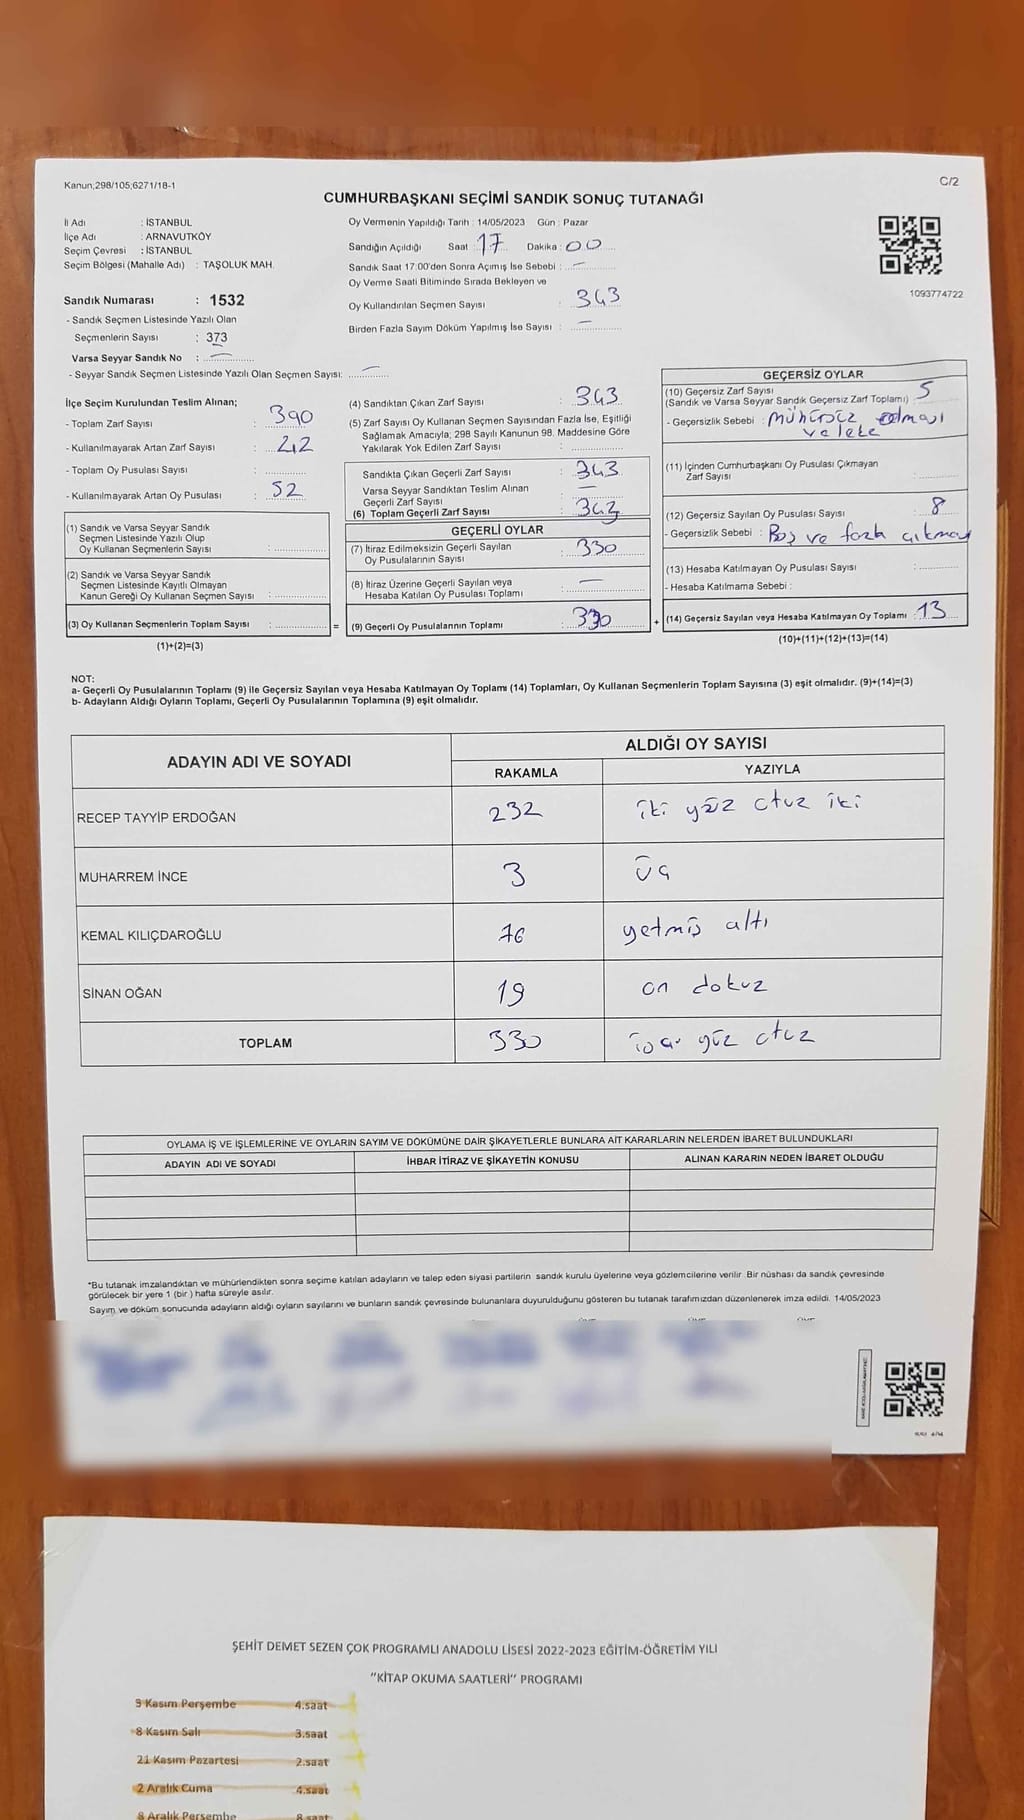 Kanun;298/105;6271/18-1
C/2
CUMHURBAŞKANI SEÇİMİ SANDIK SONUÇ TUTANAĞI
İl Adı : İSTANBUL
İlçe Adı : ARNAVUTKÖY
Seçim Çevresi : İSTANBUL
Seçim Bölgesi (Mahalle Adı) : TAŞOLUK MAH.
Oy Vermenin Yapıldığı Tarih : 14/05/2023 Gün : Pazar
Sandığın Açıldığı Saat : 17 Dakika : 00
Sandık Saat 17:00'den Sonra Açımış İse Sebebi : —
Oy Verme Saati Bitiminde Sırada Bekleyen ve
Oy Kullandırılan Seçmen Sayısı : 343
Birden Fazla Sayım Döküm Yapılmış İse Sayısı : —
1093774722
Sandık Numarası : 1532
- Sandık Seçmen Listesinde Yazılı Olan
Seçmenlerin Sayısı : 373
Varsa Seyyar Sandık No : —
- Seyyar Sandık Seçmen Listesinde Yazılı Olan Seçmen Sayısı: —
İlçe Seçim Kurulundan Teslim Alınan;
- Toplam Zarf Sayısı : 390
- Kullanılmayarak Artan Zarf Sayısı : 42
- Toplam Oy Pusulası Sayısı :
- Kullanılmayarak Artan Oy Pusulası : 52
(1) Sandık ve Varsa Seyyar Sandık
Seçmen Listesinde Yazılı Olup
Oy Kullanan Seçmenlerin Sayısı :
(2) Sandık ve Varsa Seyyar Sandık
Seçmen Listesinde Kayıtlı Olmayan
Kanun Gereği Oy Kullanan Seçmen Sayısı :
(3) Oy Kullanan Seçmenlerin Toplam Sayısı : =
(1)+(2)=(3)
(4) Sandıktan Çıkan Zarf Sayısı : 343
(5) Zarf Sayısı Oy Kullanan Seçmen Sayısından Fazla İse, Eşitliği
Sağlamak Amacıyla; 298 Sayılı Kanunun 98. Maddesine Göre
Yakılarak Yok Edilen Zarf Sayısı :
Sandıkta Çıkan Geçerli Zarf Sayısı : 343
Varsa Seyyar Sandıktan Teslim Alınan
Geçerli Zarf Sayısı : —
(6) Toplam Geçerli Zarf Sayısı : 343
GEÇERLİ OYLAR
(7) İtiraz Edilmeksizin Geçerli Sayılan
Oy Pusulalarının Sayısı : 330
(8) İtiraz Üzerine Geçerli Sayılan veya
Hesaba Katılan Oy Pusulası Toplamı : —
(9) Geçerli Oy Pusulalarının Toplamı : 330 +
GEÇERSİZ OYLAR
(10) Geçersiz Zarf Sayısı
(Sandık ve Varsa Seyyar Sandık Geçersiz Zarf Toplamı) : 5
- Geçersizlik Sebebi : mühürsüz olması
ve leke
(11) İçinden Cumhurbaşkanı Oy Pusulası Çıkmayan
Zarf Sayısı :
(12) Geçersiz Sayılan Oy Pusulası Sayısı : 8
- Geçersizlik Sebebi : Boş ve fazla çıkması
(13) Hesaba Katılmayan Oy Pusulası Sayısı :
- Hesaba Katılmama Sebebi :
(14) Geçersiz Sayılan veya Hesaba Katılmayan Oy Toplamı : 13
(10)+(11)+(12)+(13)=(14)
NOT:
a- Geçerli Oy Pusulalarının Toplamı (9) ile Geçersiz Sayılan veya Hesaba Katılmayan Oy Toplamı (14) Toplamları, Oy Kullanan Seçmenlerin Toplam Sayısına (3) eşit olmalıdır. (9)+(14)=(3)
b- Adayların Aldığı Oyların Toplamı, Geçerli Oy Pusulalarının Toplamına (9) eşit olmalıdır.
ADAYIN ADI VE SOYADI ALDIĞI OY SAYISI
RAKAMLA YAZIYLA
RECEP TAYYİP ERDOĞAN 232 iki yüz otuz iki
MUHARREM İNCE 3 üç
KEMAL KILIÇDAROĞLU 76 yetmiş altı
SİNAN OĞAN 19 on dokuz
TOPLAM 330 üç yüz otuz
OYLAMA İŞ VE İŞLEMLERİNE VE OYLARIN SAYIM VE DÖKÜMÜNE DAİR ŞİKAYETLERLE BUNLARA AİT KARARLARIN NELERDEN İBARET BULUNDUKLARI
ADAYIN ADI VE SOYADI İHBAR İTİRAZ VE ŞİKAYETİN KONUSU ALINAN KARARIN NEDEN İBARET OLDUĞU
*Bu tutanak imzalandıktan ve mühürlendikten sonra seçime katılan adayların ve talep eden siyasi partilerin sandık kurulu üyelerine veya gözlemcilerine verilir. Bir nüshası da sandık çevresinde
görülecek bir yere 1 (bir ) hafta süreyle asılır.
Sayım ve döküm sonucunda adayların aldığı oyların sayılarını ve bunların sandık çevresinde bulunanlara duyurulduğunu gösteren bu tutanak tarafımızdan düzenlenerek imza edildi. 14/05/2023
ŞEHİT DEMET SEZEN ÇOK PROGRAMLI ANADOLU LİSESİ 2022-2023 EĞİTİM-ÖĞRETİM YILI
"KİTAP OKUMA SAATLERİ" PROGRAMI
3 Kasım Perşembe 4.saat
8 Kasım Salı 3.saat
21 Kasım Pazartesi 2.saat
2 Aralık Cuma 4.saat
8 Aralık Perşembe 8.saat